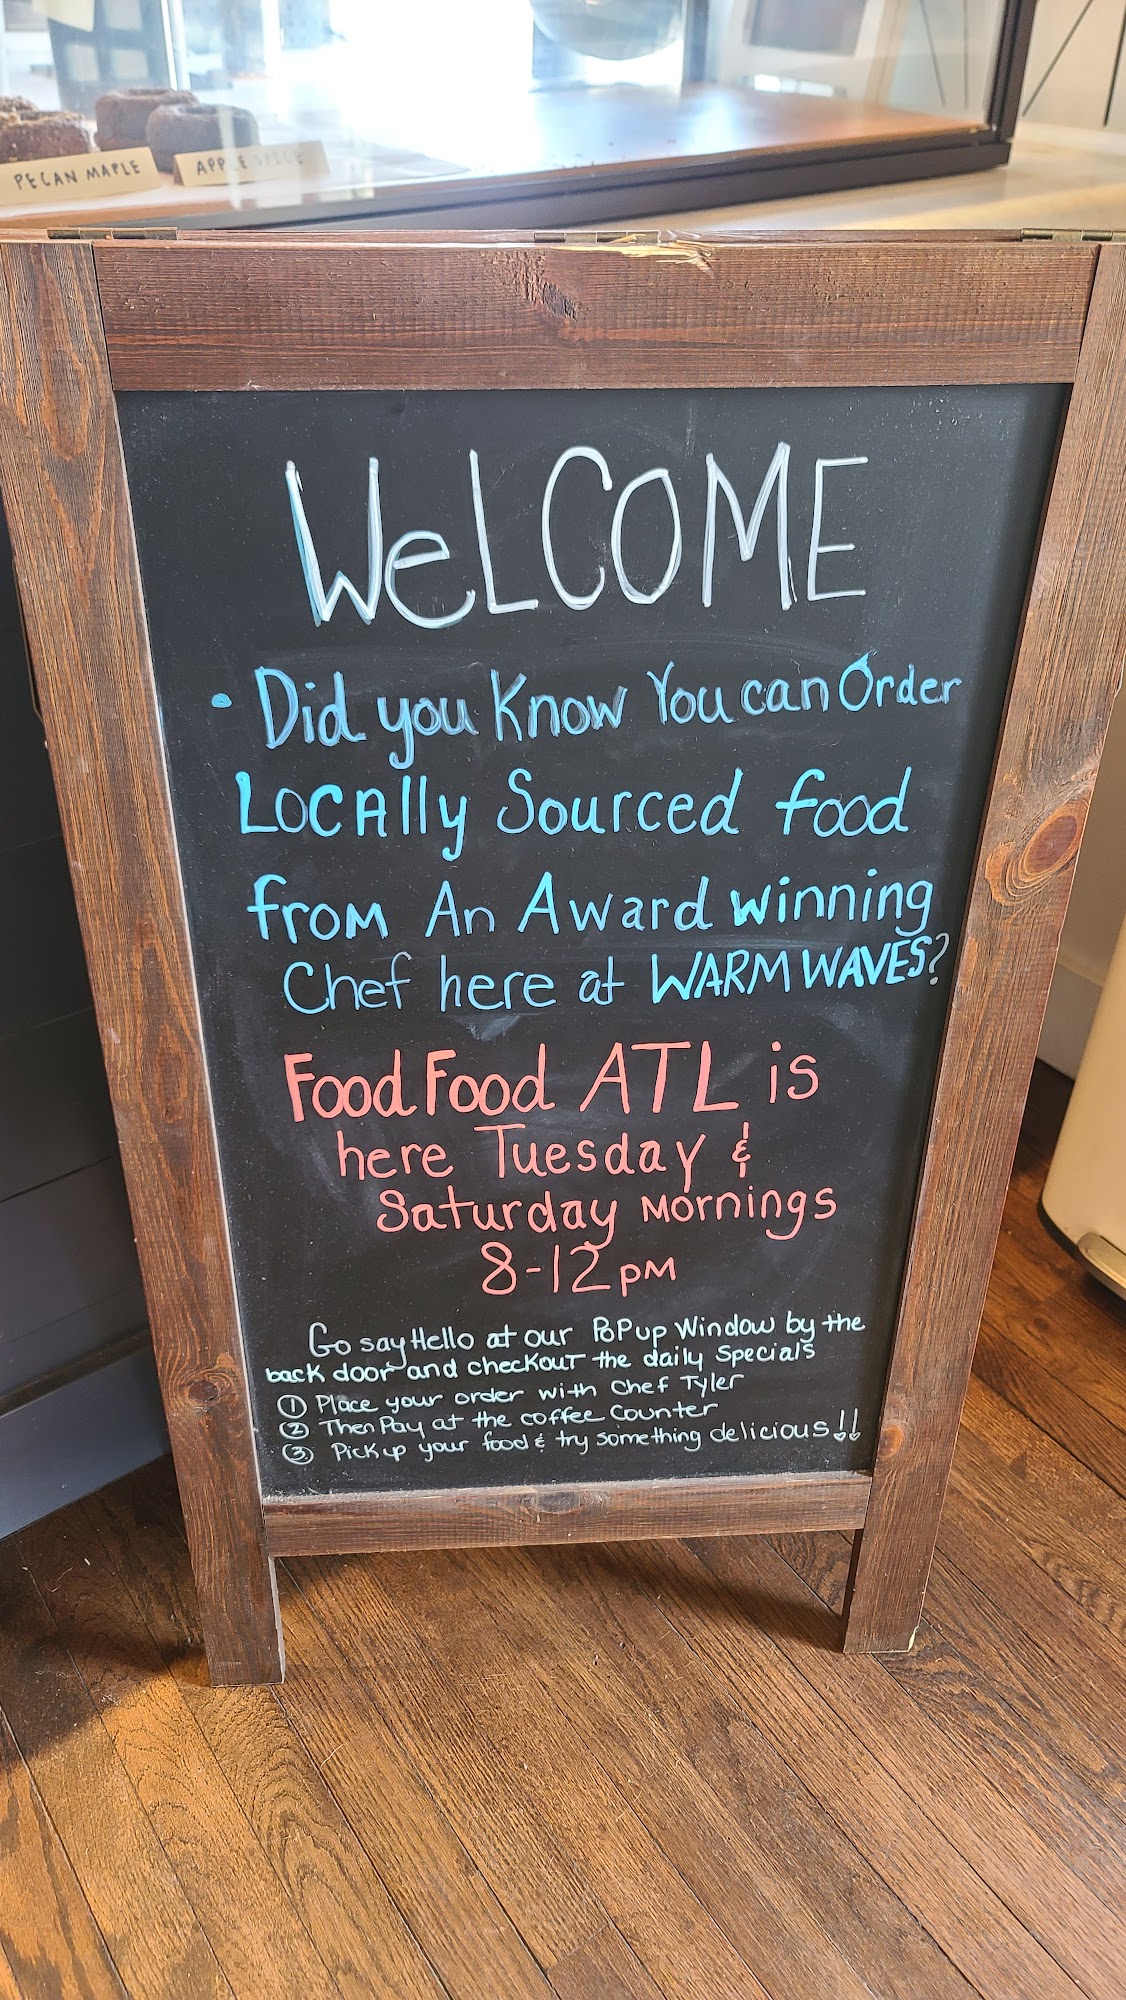 PECAN MAPLE
APPLE SPICE
WeLCOME
• Did you Know You can Order
LOCAlly Sourced food
from An Award winning
Chef here at WARM WAVES?
Food Food ATL is
here Tuesday &
Saturday Mornings
8-12 PM
Go say Hello at our PoPup Window by the
back door and checkout the daily Specials
① Place your order with Chef Tyler
② Then Pay at the coffee Counter
③ Pick up your food & try something delicious!!